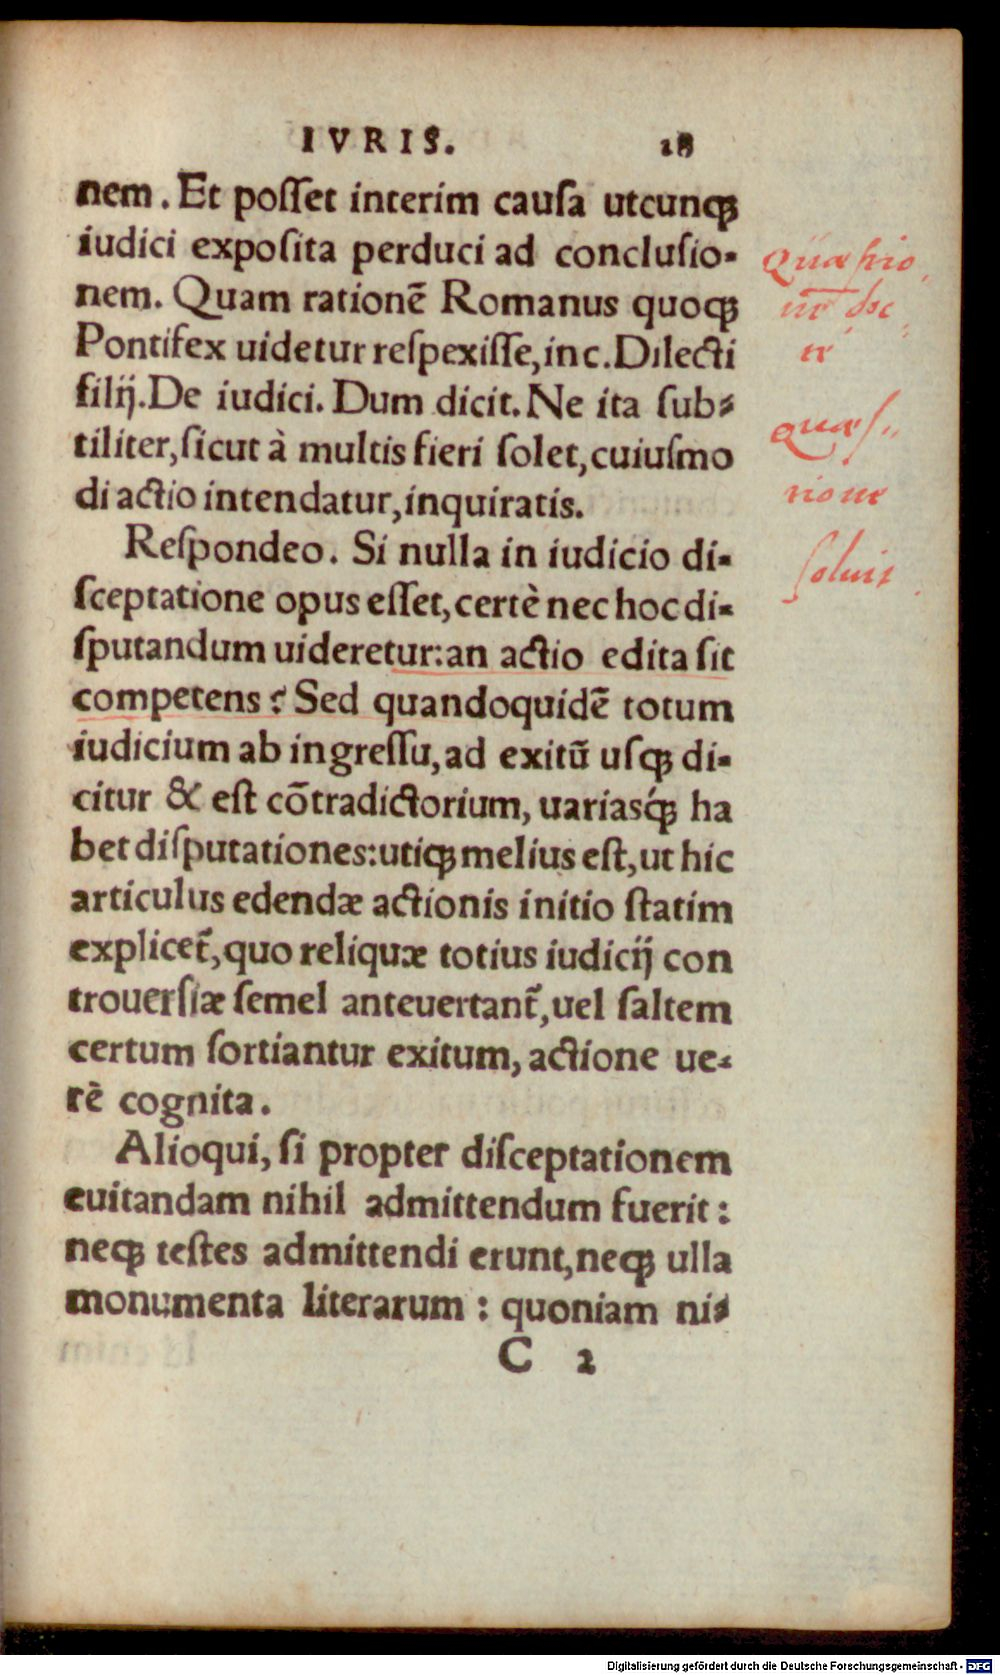 IVRIS. 18
nem. Et poſſet interim cauſa utcunq́ꝫ
iudici expoſita perduci ad concluſio-
nem. Quam rationē Romanus quoqꝫ
Pontifex uidetur reſpexiſſe, in c. Dilecti
filij. De iudici. Dum dicit. Ne ita ſub-
tiliter, ſicut à multis fieri ſolet, cuiuſmo
di actio intendatur, inquiratis.
Reſpondeo. Si nulla in iudicio di-
ſceptatione opus eſſet, certè nec hoc di-
ſputandum uideretur: an actio edita ſit
competens? Sed quandoquidē totum
iudicium ab ingreſſu, ad exitū uſqꝫ di-
citur & eſt cōtradictorium, uariasq́ꝫ ha
bet diſputationes: utiqꝫ melius eſt, ut hic
articulus edendæ actionis initio ſtatim
explicet̃, quo reliquæ totius iudicij con
trouerſiæ ſemel anteuertant̃, uel ſaltem
certum ſortiantur exitum, actione ue-
rè cognita.
Alioqui, ſi propter diſceptationem
euitandam nihil admittendum fuerit:
neqꝫ teſtes admittendi erunt, neqꝫ ulla
monumenta literarum: quoniam ni-
C 2
Quæſtio
Quæſ-
tione
ſoluit
Digitalisierung gefördert durch die Deutsche Forschungsgemeinschaft - DFG